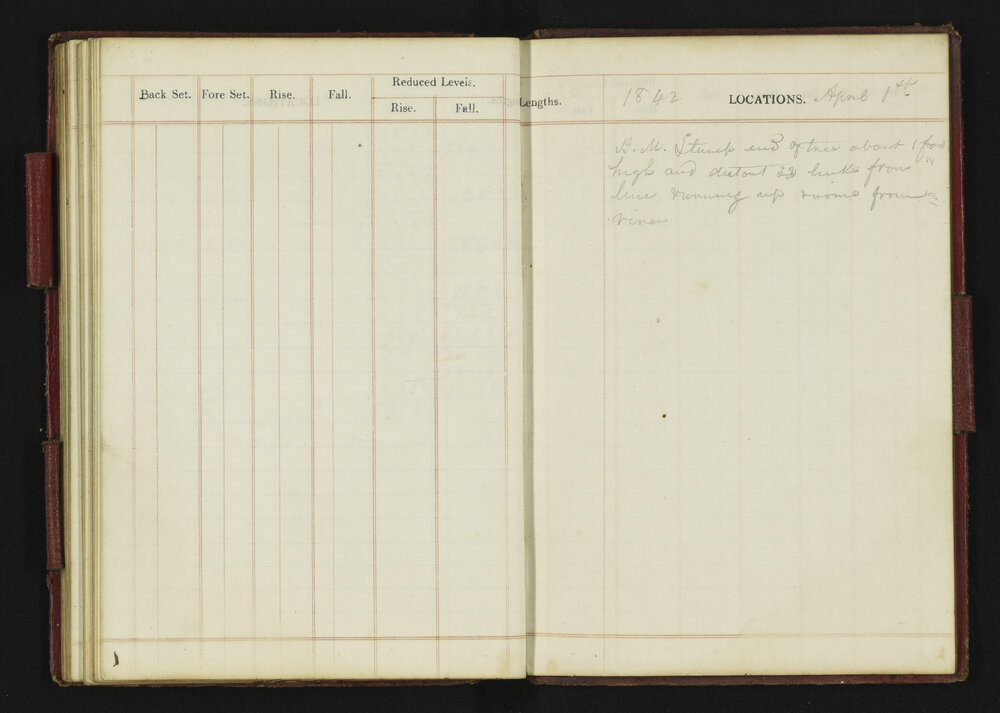 Back Set. Fore Set. Rise. Fall. Reduced Levels. Rise. Fall. Lengths.
1842 LOCATIONS. April 1st
B. M. Stump end of tree about 1 foot
high and distant 23 links from a
line running up from
river